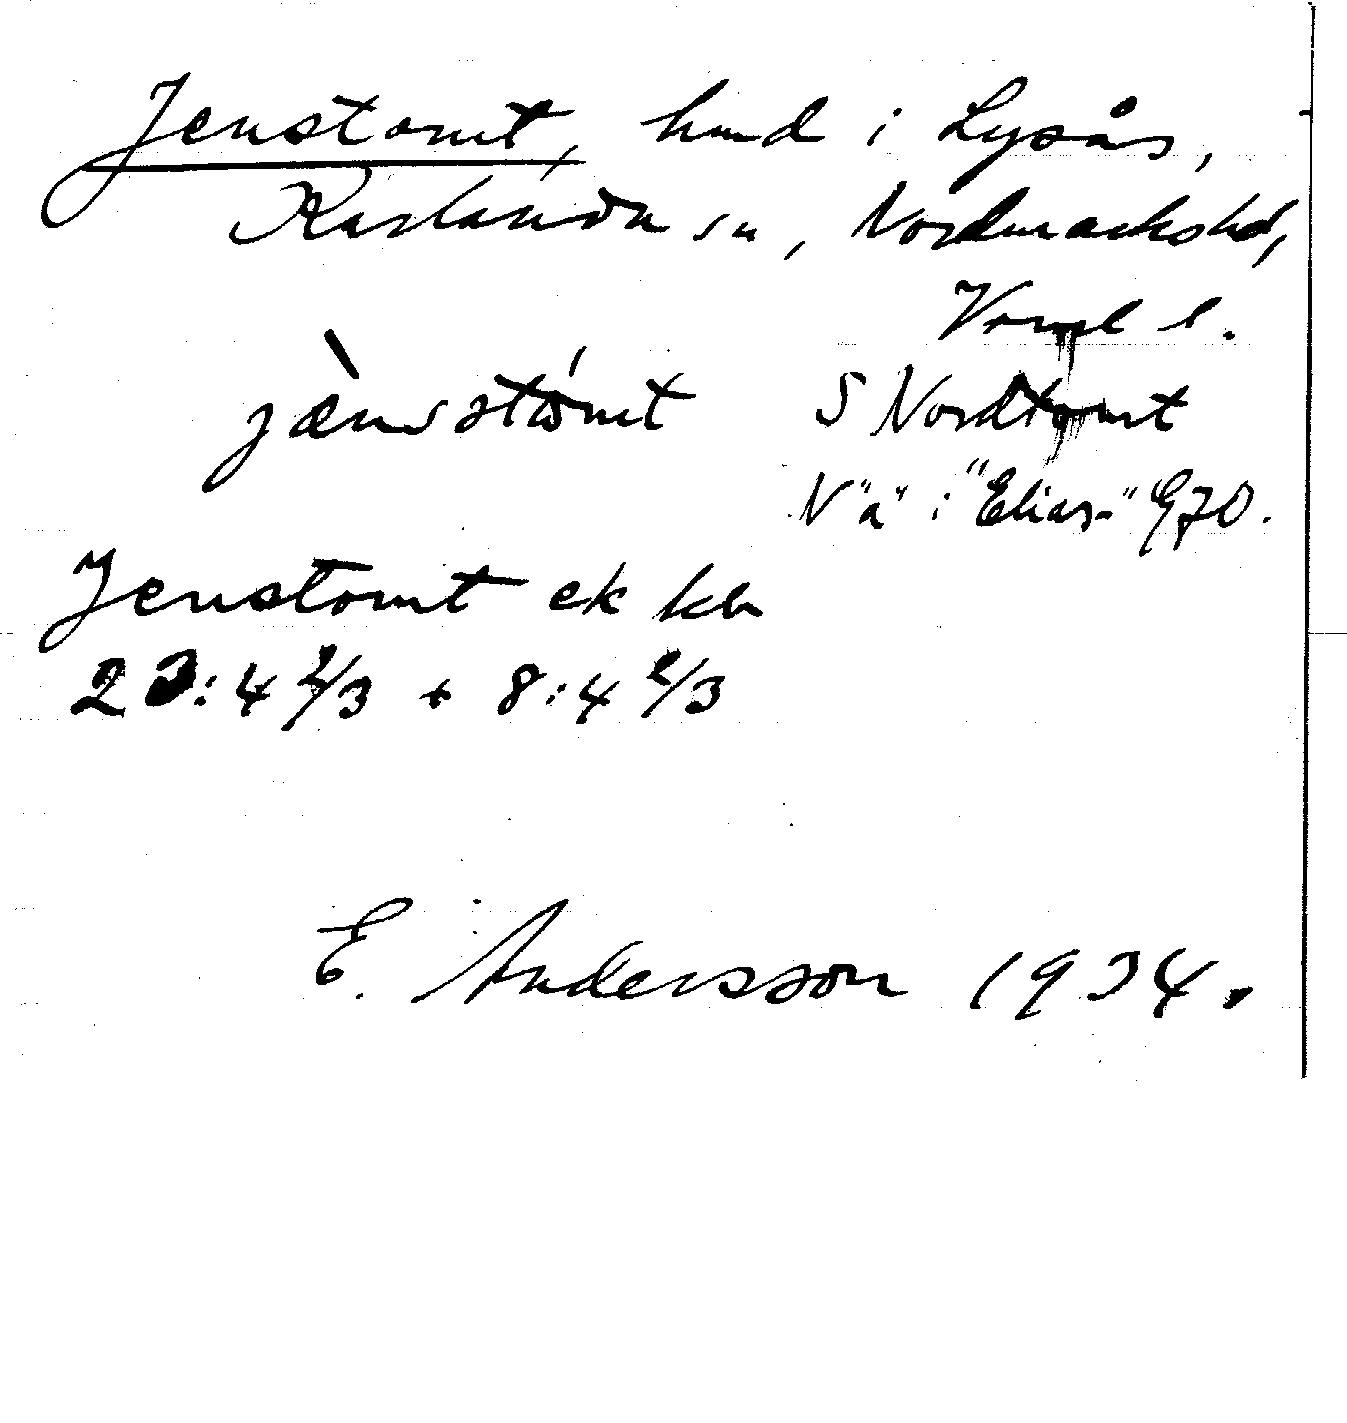 Jenstomt, hmd i Lysås,
Karlanda sn, Nordmarks hd,
Värml l.
jæ̀nstómt S Nordtomt
N "a" i "Elias-" G70.
Jenstomt ek kbl
23:4 2/3 + 8:4 2/3
E. Andersson 1934.